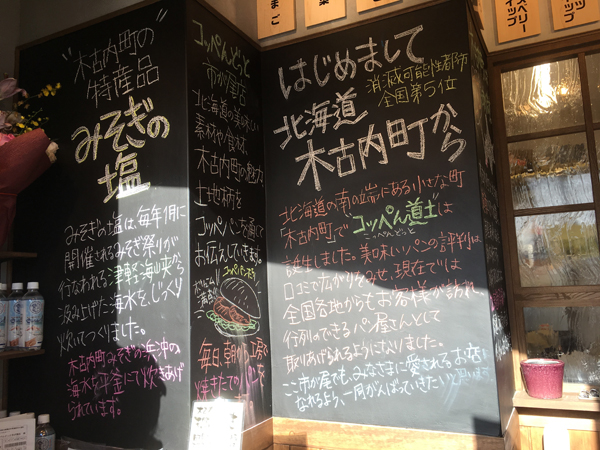 "木古内町の
特産品"
みそぎの
塩
みそぎの塩は、毎年1月に
開催されるみそぎ祭りが
行なわれる津軽海峡から
汲み上げた海水を、じっくり
炊いてつくりました。
木古内町みそぎの浜沖の
海水を平釜にて炊きあげ
られています。
コッペんどっと
市が尾店
北海道の美味しい
素材や食材、
木古内町の魅力
土地柄を
コッペパンを通して
お伝えしていきます。
コッペパンだョ
ボリューム
満点
毎日、朝から工房で
焼きたてのパンを
はじめまして
消滅可能性都市
全国第5位
北海道
木古内町から
北海道の南の端にある小さな町
"木古内町"で"コッペん道土"は
こっぺん どっと
誕生しました。美味しいパンの評判は、
口コミで広がりをみせ、現在では
全国各地からもお客様が訪れ、
行列のできるパン屋さんとして
取りあげられるようになりました。
ここ市が尾でも、みなさまに愛されるお店に
なれるよう、一同がんばっていきたいと思います